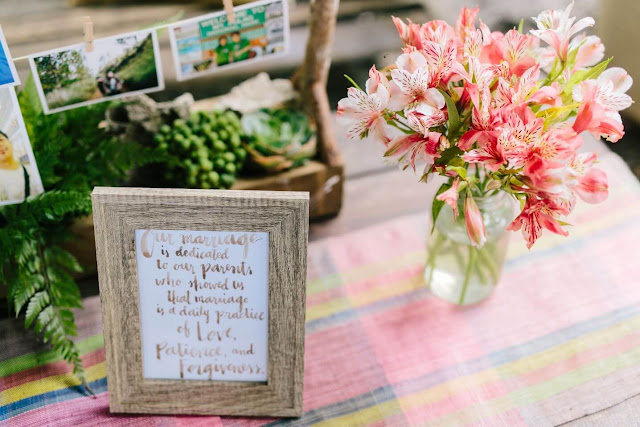 WELCOME TO
Our marriage
is dedicated
to our parents
who showed us
that marriage
is a daily practice
of Love,
Patience, and
Forgiveness.